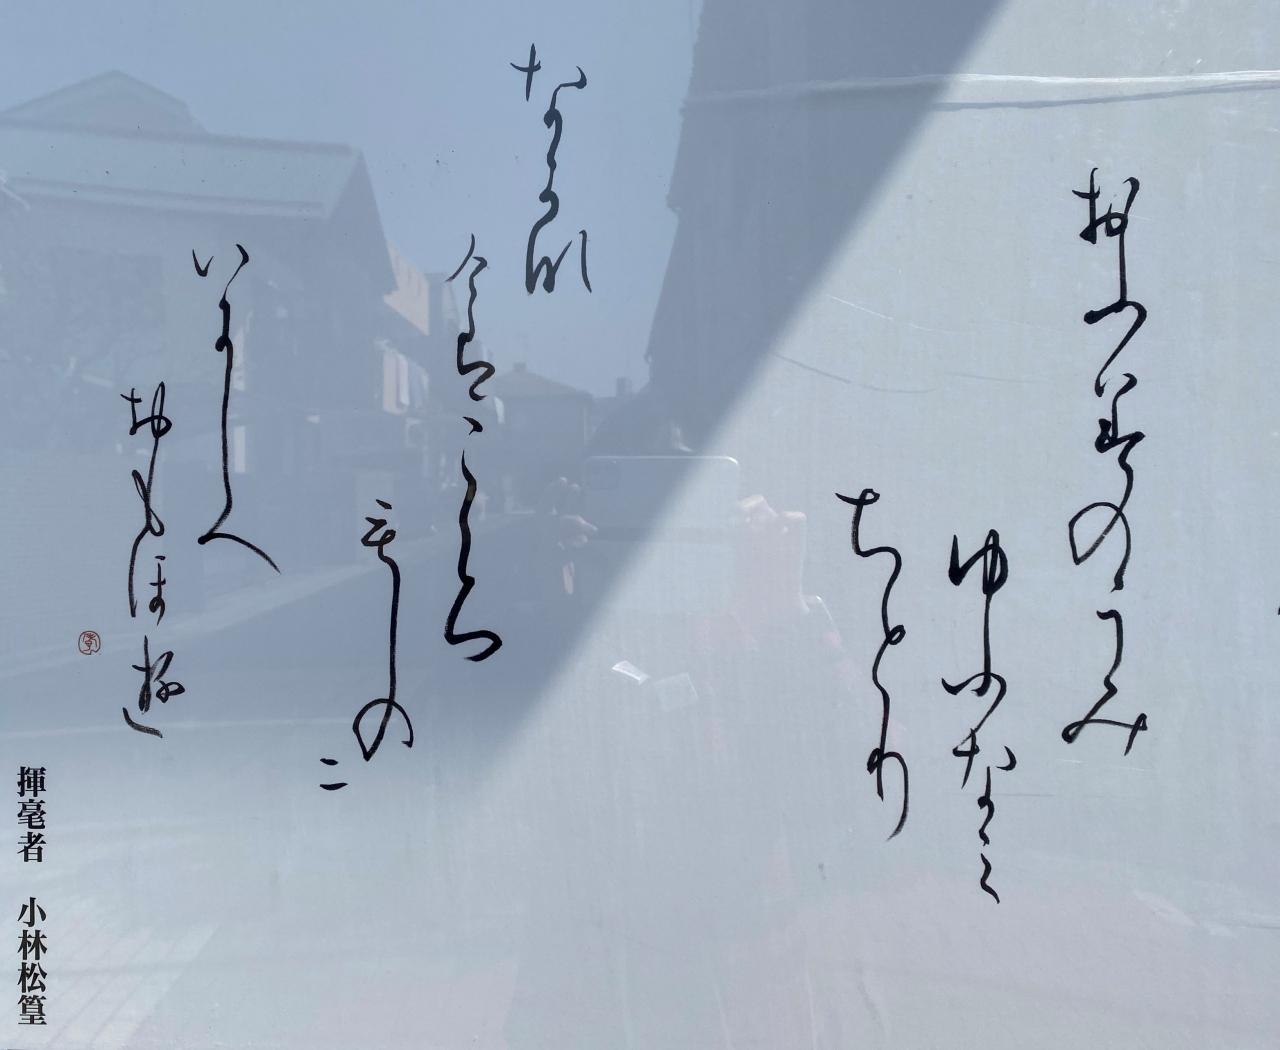 あふみのうみ
ゆふなみ
ちとり
なかな
けはこころ
もしの
二
いにしへ
おもほゆ
揮毫者　小林松篁